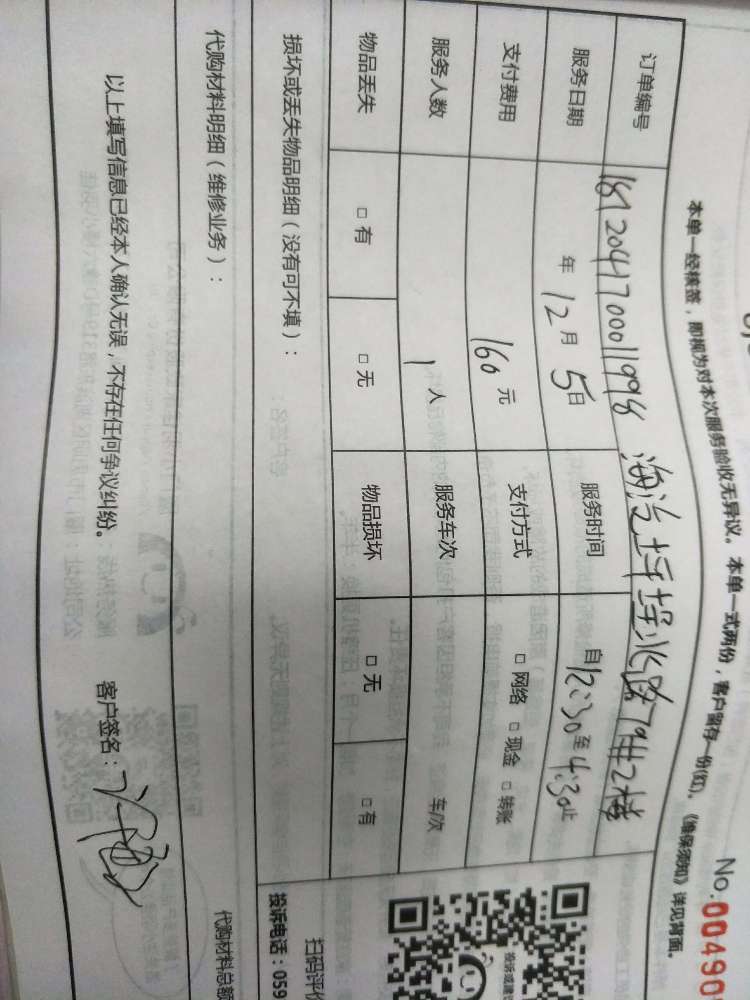 No.00490
本单一经核签，即视为对本次服务验收无异议。本单一式两份，客户留存一份(红)。《维保须知》详见背面。
订单编号 1812041700011998
服务日期 年 12 月 5 日 服务时间 自 12:30 至 4:30 止
支付费用 160 元 支付方式 □ 网络 □ 现金 □ 转账
服务人数 1 人 服务车次 车/次
物品丢失 □ 有 □ 无 物品损坏 □ 无 □ 有
损坏或丢失物品明细（没有可不填）：
扫码评价
投诉电话：059
代购材料明细（维修业务）：
代购材料总额
以上填写信息已经本人确认无误，不存在任何争议纠纷。 客户签名：